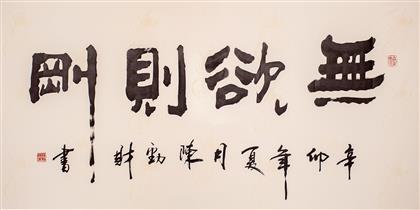 無欲則剛
辛卯年夏月陳勁財書